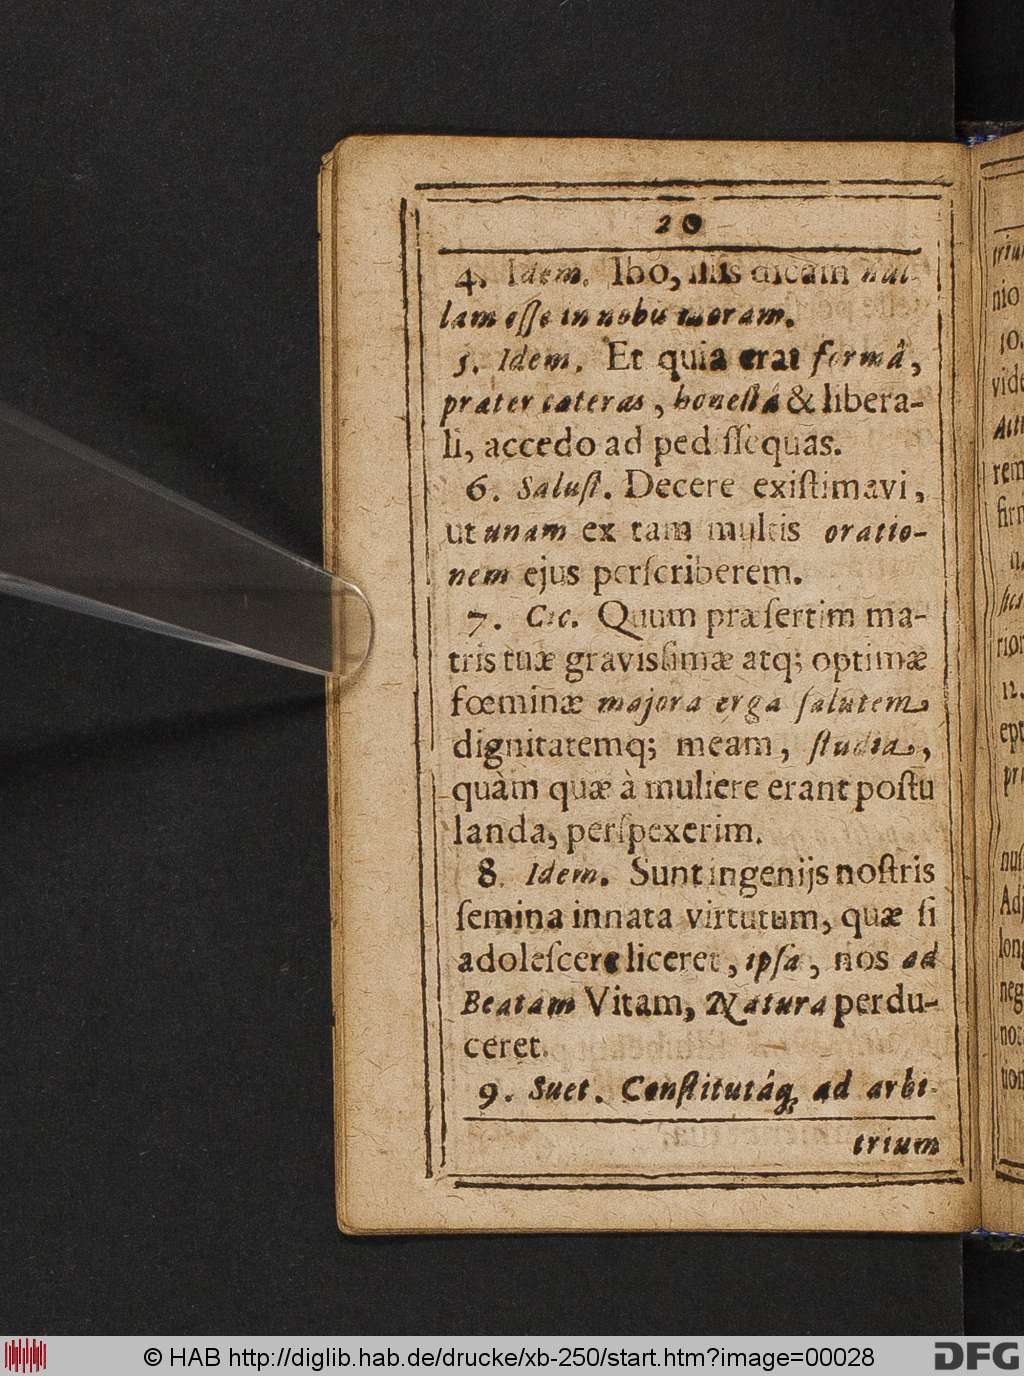 20
4. Idem. Ibo, illis dicam nul-
lam eſſe in nobis moram.
5. Idem. Et quia erat formâ,
præter cæteras, honeſtá & libera-
li, accedo ad pediſſequas.
6. Saluſt. Decere exiſtimavi,
ut unam ex tam multis oratio-
nem ejus perſcriberem.
7. Cic. Quum præſertim ma-
tris tuæ gravisſimæ atq; optimæ
fœminæ majora erga ſalutem
dignitatemq; meam, ſtudia,
quàm quæ à muliere erant poſtu
landa, perſpexerim.
8. Idem. Sunt ingenijs noſtris
ſemina innata virtutum, quæ ſi
adoleſcere liceret, ipſa, nos ad
Beatam Vitam, Natura perdu-
ceret.
9. Suet. Conſtitutáq; ad arbi-
trium
© HAB http://diglib.hab.de/drucke/xb-250/start.htm?image=00028
DFG